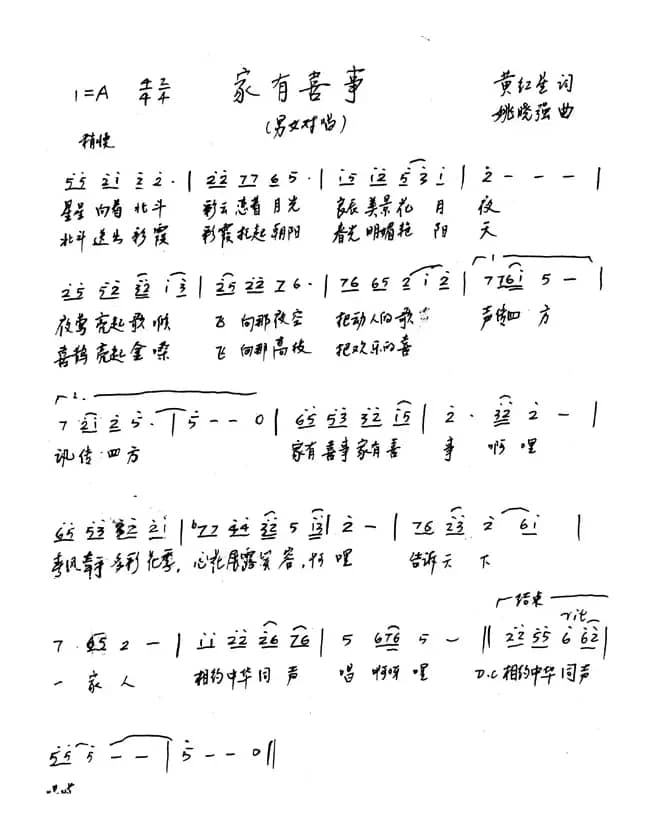 家有喜事
1=A 4/4 2/4
(男女对唱)
黄红星 词
姚晓强 曲
稍快
55 21 2 2· | 22 77 6 5· | 15 12 5 3 1 | 2 - - - |
星星 向着 北斗 彩云 恋着 月光 良辰 美景 花 月 夜
北斗 送出 彩霞 彩霞 托起 朝阳 春光 明媚 艳 阳 天
25 52 32 13 | 25 22 76· | 76 65 2 1 2 | 1. 7 761 5 - |
夜莺 亮起 歌喉 飞 向那 夜空 把动人的歌 声传四 方
喜鹊 亮起 金嗓 飞 向那 高枝 把欢乐的喜
2. 7 21 2 5· | 5 - - 0 | 65 53 32 15 | 2· 32 2 - |
讯 传 四方 家有 喜事 家有 喜 事 啊 哩
65 53 32 21 | b777 44 32 5 13 | 2 - | 76 23 2 61 |
春风 牵手 多彩 花季, 心花 展露 笑 容, 啊 哩 告诉 天 下
7 65 2 - | 11 22 26 76 | 5 676 5 - || 结束 rit 22 55 6 62 |
一 家 人 相约 中华 同 声 唱 啊呀 哩 D.C 相约 中华 同声
55 5 - - | 5 - - 0 ||